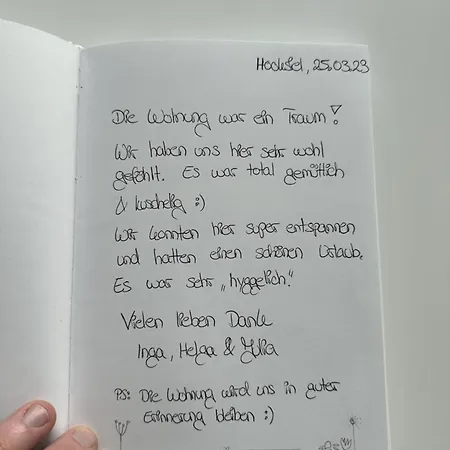 Hochsiel, 25.03.23
Die Wohnung war ein Traum!
Wir haben uns hier sehr wohl
gefühlt. Es war total gemütlich
& kuschelig :)
Wir konnten hier super entspannen
und hatten einen schönen Urlaub.
Es war sehr „hyggelich."
Vielen lieben Dank
Inga, Helga & Julia
PS: Die Wohnung wird uns in guter
Erinnerung bleiben :)